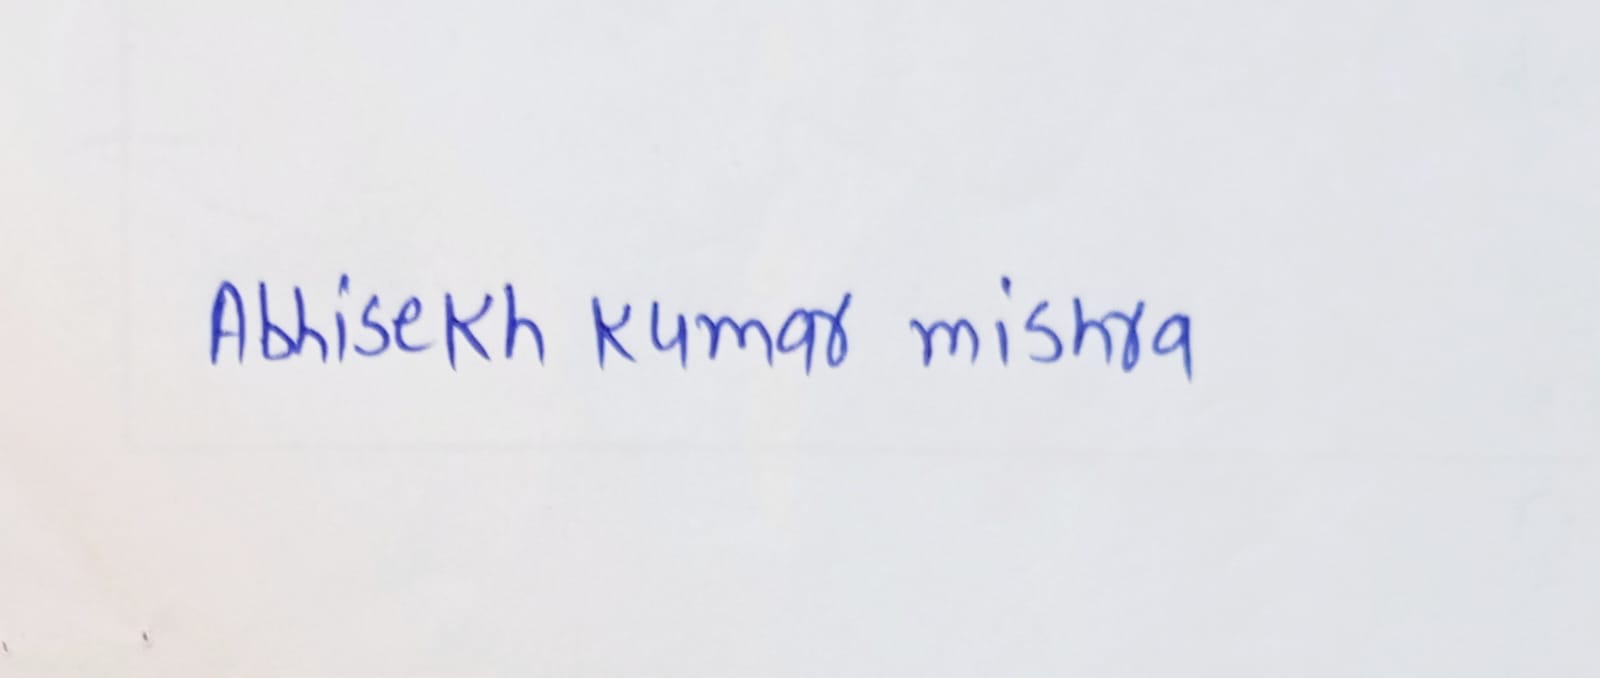 Abhisekh kumar mishra